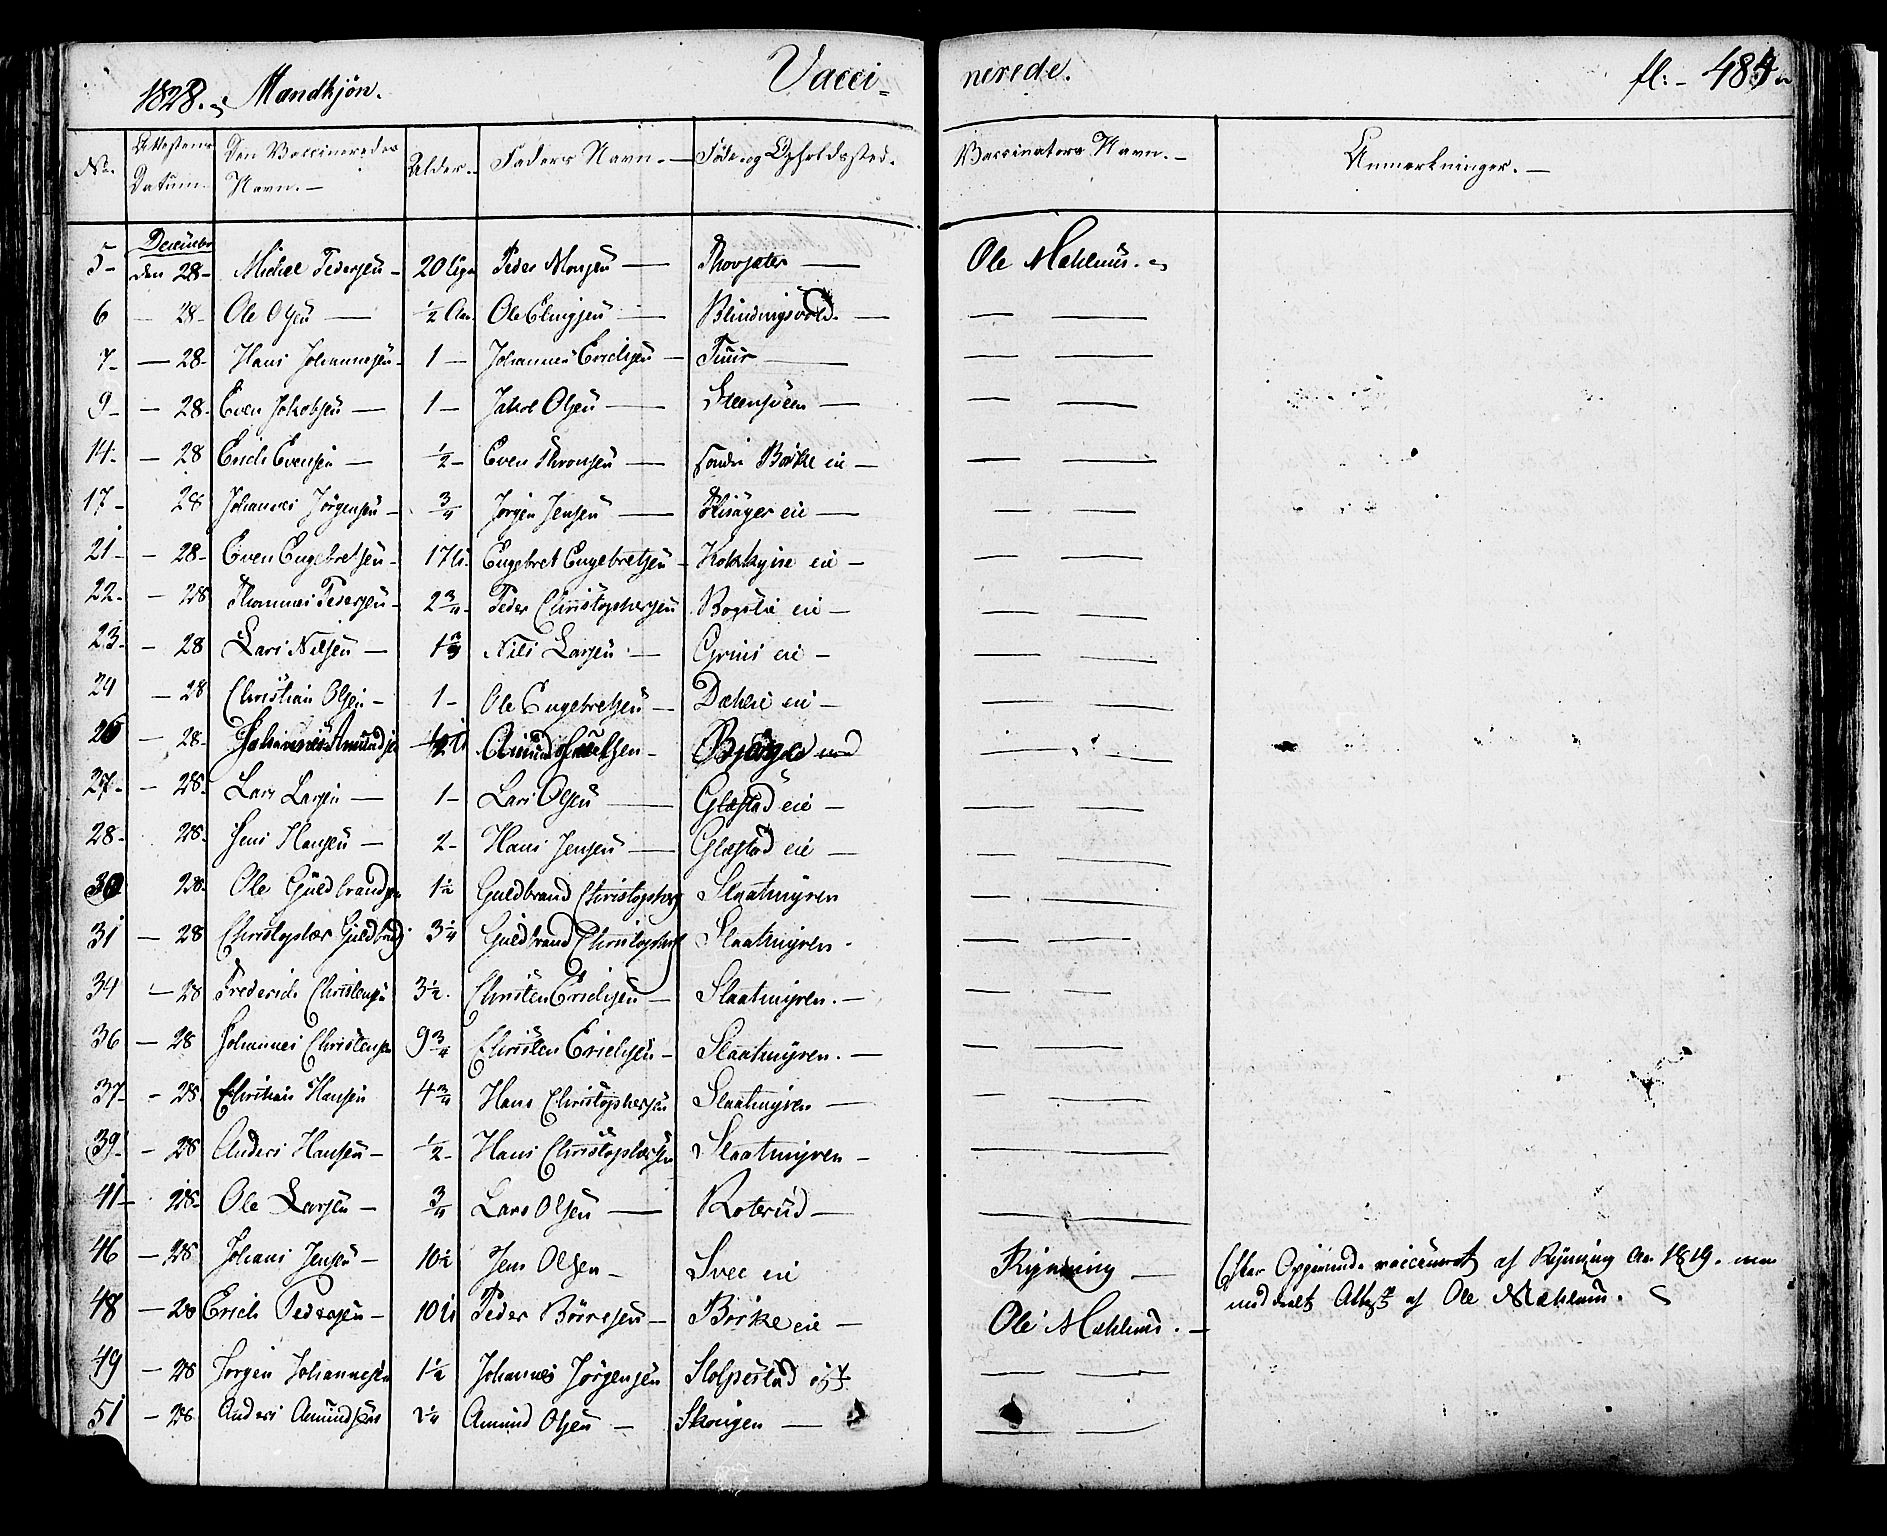 1828. Mandkjøn. Vacci- nerede. fl: 484
No. Attestens Datum. Den Vaccineredes Navn. Alder. Faders Navn. Føde og Opholdssted. Vaccinators Navn. Anmerkninger.
December
5 den 28 Michel Pedersen 20 Peder Monsen Ole Mæhlum.
6 — 28 Ole Olsen ½ Aar Ole Elingsen Blindingsvold
7 — 28 Hans Johannesen 1 Johannes Erichsen Tuur
9 — 28 Even Jakobsen 1 Jakob Olsen Steensveen
14 — 28 Erich Evensen ½ Even Thronsen søndre Børke eie
17 28 Johannes Jørgensen ¾ Jørgen Jensen eie
21 — 28 Even Engebretsen 17 Engebret Engebretsen eie
22 — 28 Thommes Pedersen 2¾ Peder Christophersen Bogstie eie
23 — 28 Lars Nilsen 1¾ Nils Larsen eie
24 — 28 Christian Olsen 1 Ole Engebretsen Dæhlie eie
26 — 28 Johannes Amundsen ½ Amund
27 — 28 Lars Larsen 1 Lars Olsen Glæstad eie
28 28 Jens Hansen 2 Hans Jensen Glæstad eie
30 28 Ole Guldbrandsen 1½ Guldbrand Christophers Slaatmyren
31 — 28 Christopher Guldbrands 3¼ Guldbrand Christophers Slaatmyren
34 — 28 Frederich Christensen 3½ Christen Erichsen Slaatmyren.
36 — 28 Johannes Christensen 9¾ Christen Erichsen Slaatmyren.
37 — 28 Christian Hansen 4¾ Hans Christophersen Slaatmyren
39 — 28 Anders Hansen ½ Hans Christophersen Slaatmyren
41 — 28 Ole Larsen ¾ Lars Olsen Roterud
46 — 28 Johans Jensen 10½ Jens Olsen Svee eie Rynning Efter Opgivende vaccineret af Rynning Aar 1819. men
48 — 28 Erich Pedersen 10 Peder Børresen Børke eie Ole Mæhlum. meddeelt Attest af Ole Mæhlum.
49 — 28 Jørgen Johannesen 1½ Johannes Jørgensen Stolpestad
51 — 28 Anders Amundsen Amund Olsen Skougen